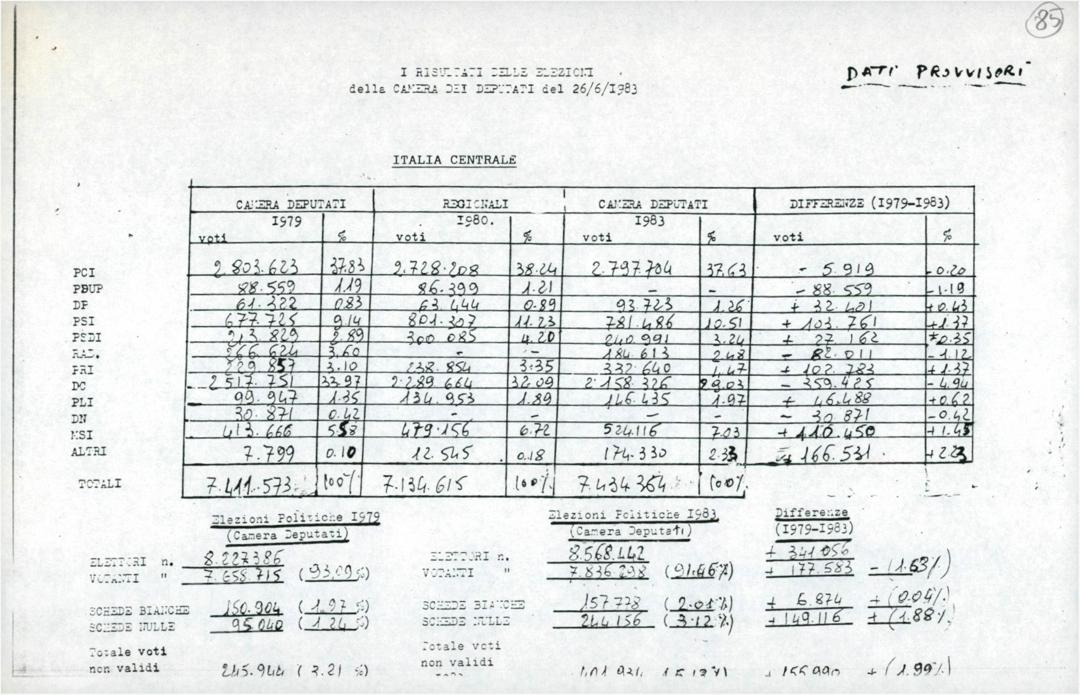 85
I RISULTATI DELLE ELEZIONI
DATI PROVVISORI
della CAMERA DEI DEPUTATI del 26/6/I983
ITALIA CENTRALE
CAMERA DEPUTATI REGIONALI CAMERA DEPUTATI DIFFERENZE (I979-I983)
I979 I980. I983
voti % voti % voti % voti %
PCI 2.803.623 37.83 2.728.208 38.24 2.797.704 37.63 - 5.919 -0.20
PDUP 88.559 1.19 86.399 1.21 - - - 88.559 -1.19
DP 61.322 0.83 63.444 0.89 93.723 1.26 + 32.401 +0.43
PSI 677.725 9.14 801.307 11.23 781.486 10.51 + 103.761 +1.37
PSDI 213.829 2.89 300.085 4.20 240.991 3.24 + 27 162 +0.35
RAD. 266.624 3.60 - - 184.613 2.48 - 82.011 -1.12
PRI 229.857 3.10 238.854 3.35 332.640 4.47 + 102.783 +1.37
DC 2517.751 33.97 2.289.664 32.09 2.158.326 29.03 - 359.425 -4.94
PLI 99.947 1.35 134.953 1.89 146.435 1.97 + 46.488 +0.62
DN 30.871 0.42 - - - - - 30.871 -0.42
MSI 413.666 5.58 479.156 6.72 524.116 7.03 + 110.450 +1.45
ALTRI 7.799 0.10 12.545 0.18 174.330 2.33 + 166.531. +2.23
TOTALI 7.411.573 100% 7.134.615 100% 7.434.364 100%
Elezioni Politiche I979 Elezioni Politiche I983 Differenze
(Camera Deputati) (Camera Deputati) (I979-I983)
ELETTORI n. 8.227.386 ELETTORI n. 8.568.442 + 341.056
VOTANTI " 7.658.715 (93,09 %) VOTANTI " 7.836.298 (91.46%) + 177.583 - (1.63%)
SCHEDE BIANCHE 150.904 (1.97 %) SCHEDE BIANCHE 157.778 (2.01%) + 6.874 + (0.04%)
SCHEDE NULLE 95.040 (1.24 %) SCHEDE NULLE 244.156 (3.12%) + 149.116 + (1.88%)
Totale voti Totale voti
non validi 245.944 (3.21 %) non validi 401.934 (5.13%) + 155.990 + (1.99%)